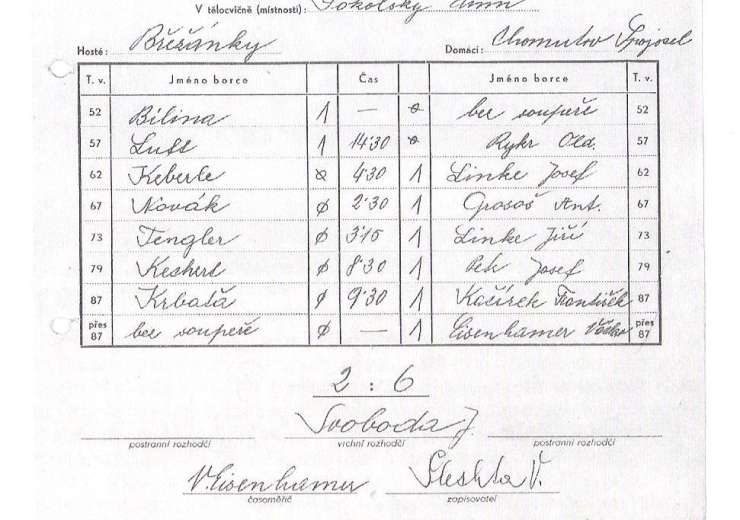 V tělocvičně (místnosti): Sokolský dům
Hosté: Břěžánky Domácí: Chomutov Spojocel
T. v. Jméno borce Čas Jméno borce T. v.
52 Bílina 1 — 0 bez soupeře 52
57 Luft 1 14'30 0 Rykr Old. 57
62 Keberle 0 4'30 1 Linke Josef 62
67 Novák 0 2'30 1 Grosoš Ant. 67
73 Tengler 0 3'15 1 Linke Jiří 73
79 Keshert 0 8'30 1 Josef 79
87 Krbaťa 0 9'30 1 Kočírek František 87
přes 87 bez soupeře 0 — 1 Eisenhamer Václav přes 87
2 : 6
Svoboda J.
postranní rozhodčí vrchní rozhodčí postranní rozhodčí
V. Eisenhamer V.
časoměřič zapisovatel